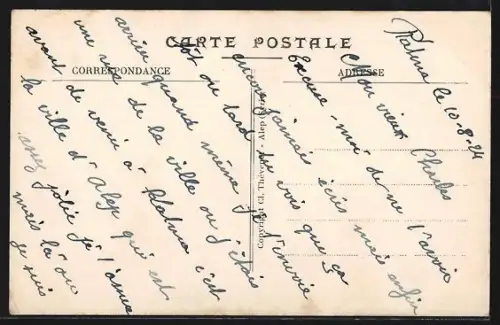 CARTE POSTALE
CORRESPONDANCE
ADRESSE
Copyright Cl. Thévenet - Alep (Syrie)
Rahma le 10-8-24
Mon vieux Charles
Excuse-moi de ne t'avoir
encore jamais écris mais enfin
tôt ou tard tu vois que ça
arrive quand même je t'envoie
une vue de la ville ou j'étais
avant de venir à Rahma c'est
la ville d'Alep qui est
assez jolie je t'assure
mais là ou
je suis